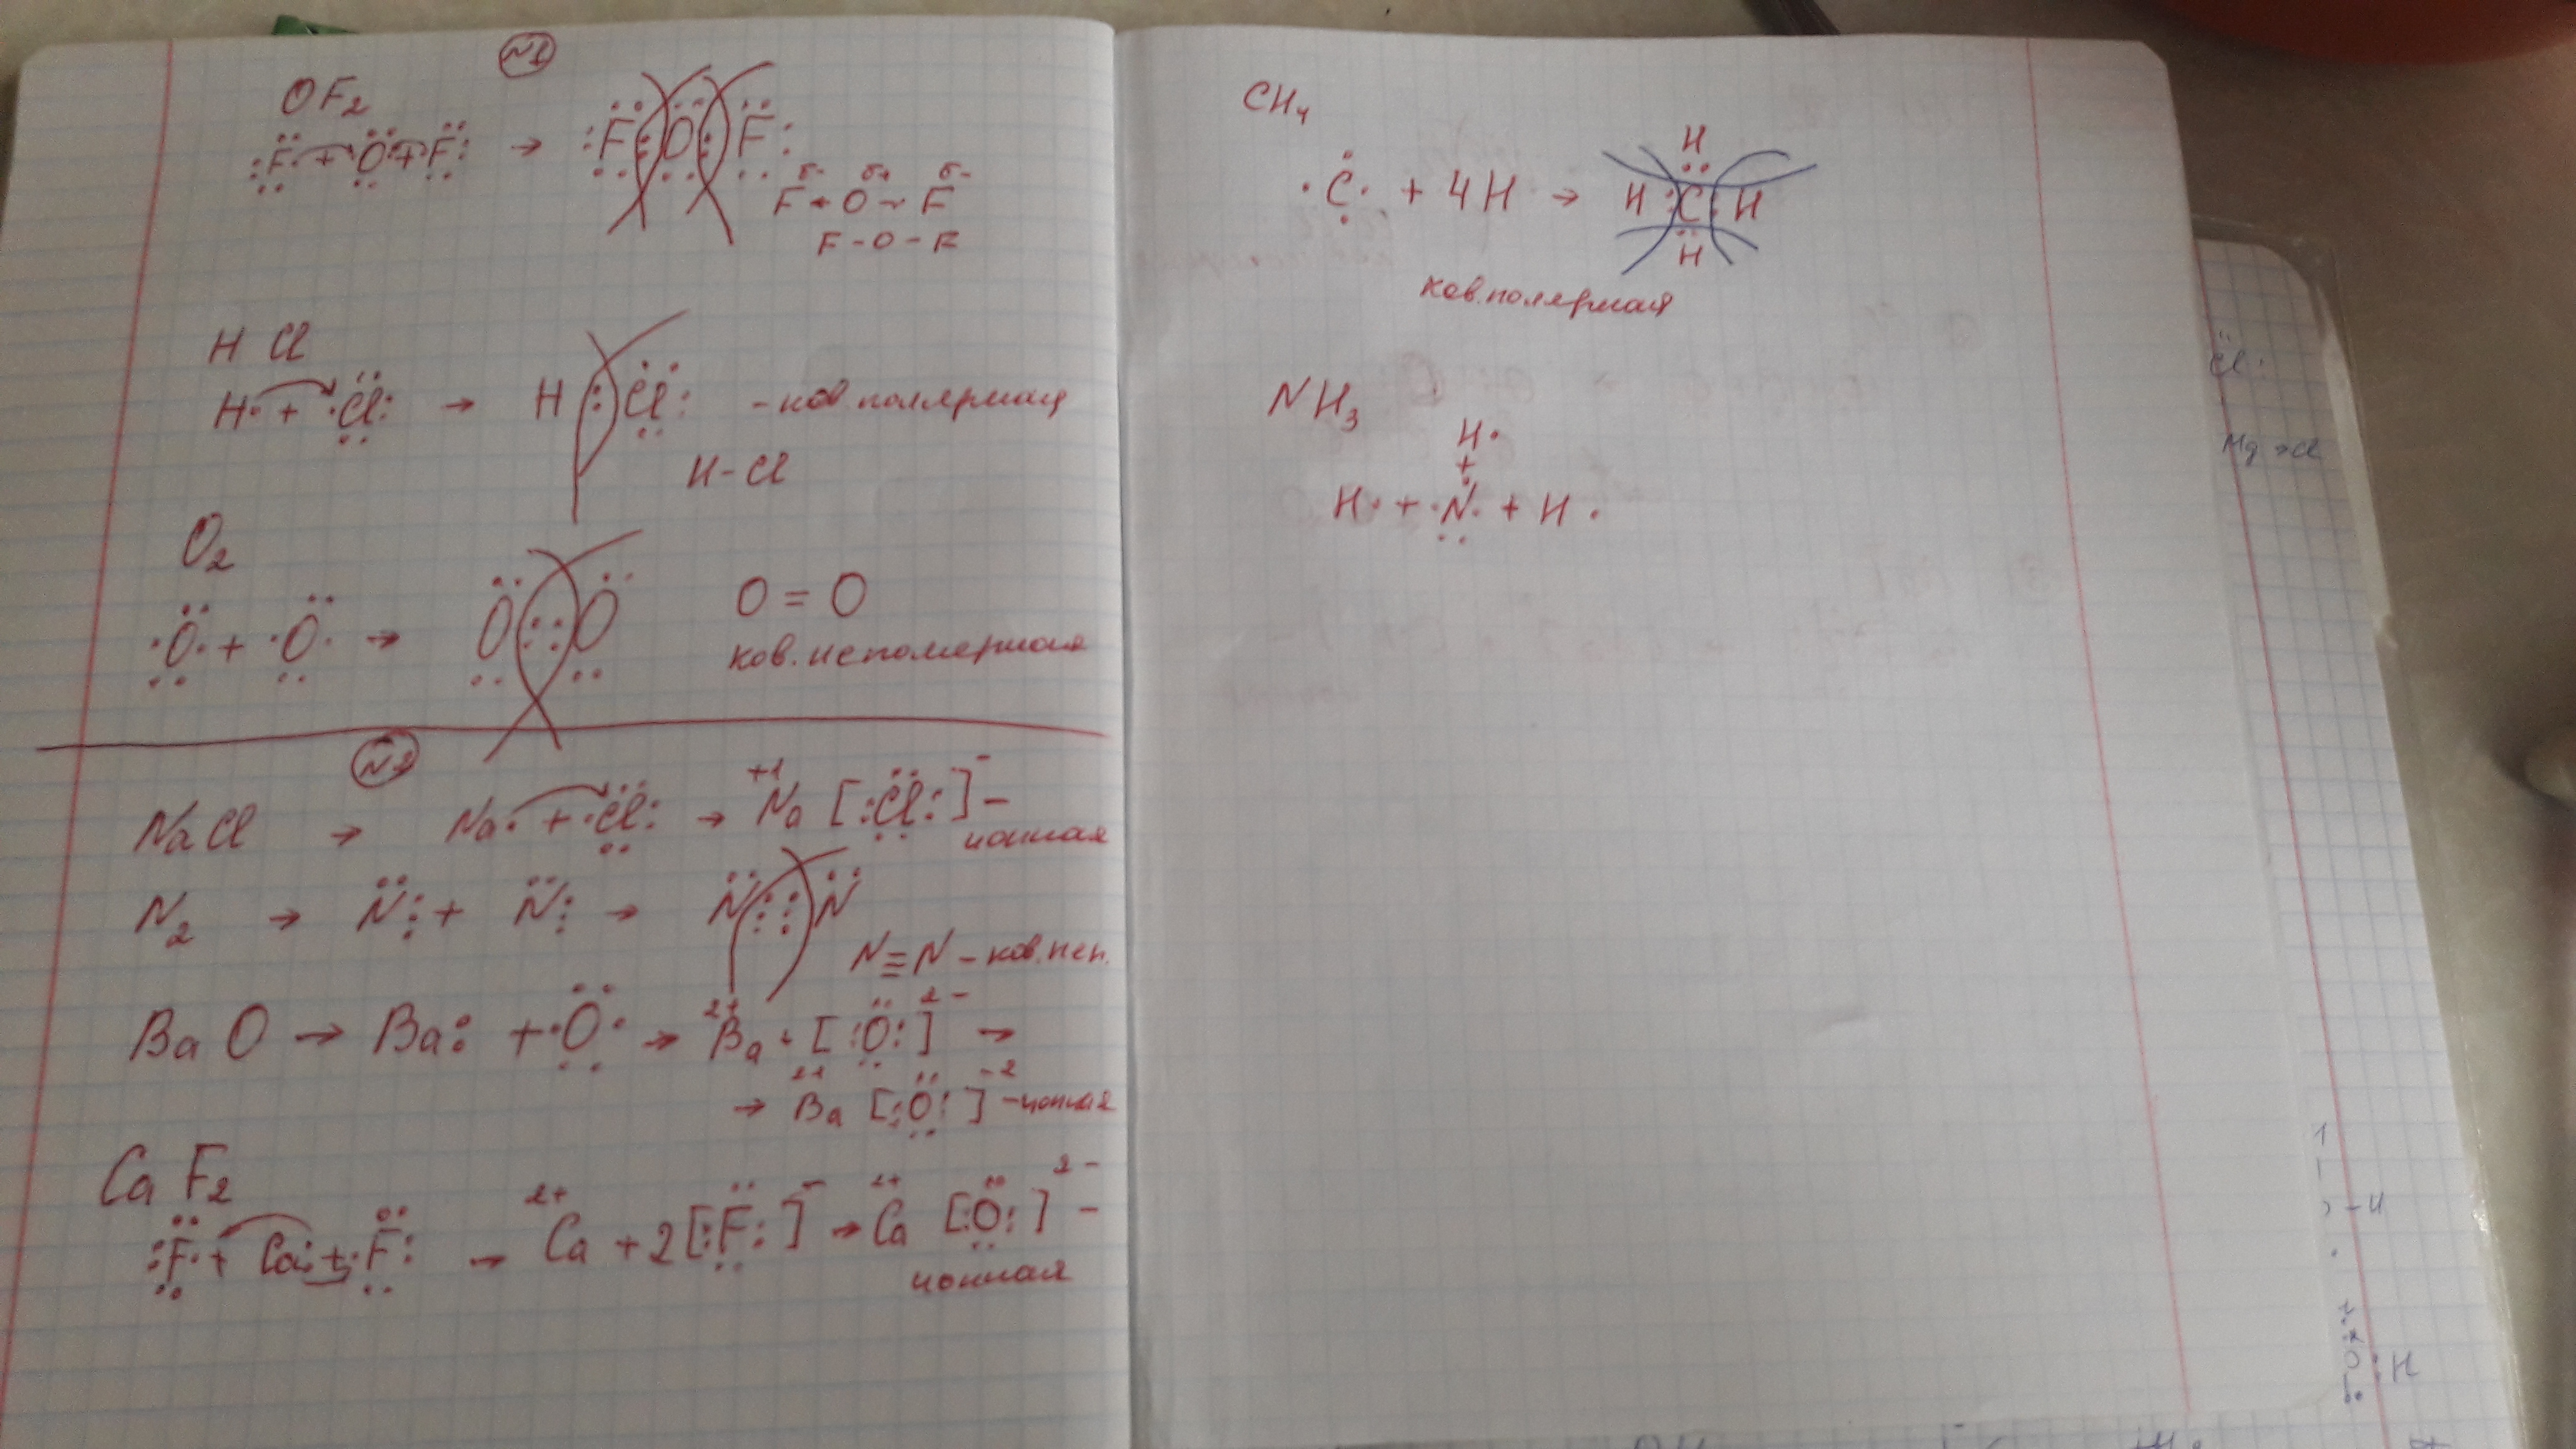 №1
OF₂
:F· + ·O· + ·F: → :F:O:F:
F ← O → F
F - O - F
HCl
H· + ·Cl: → H:Cl: - ков. полярная
H-Cl
O₂
·O· + ·O· → O::O O=O
ков. неполярная
№2
NaCl → Na· + ·Cl: → Na⁺¹ [:Cl:]⁻ - ионная
N₂ → N + N → N:::N N≡N - ков. неп.
BaO → Ba: + ·O· → Ba²⁺ + [:O:]²⁻ →
→ Ba²⁺ [:O:]⁻² - ионная
CaF₂
:F· + Ca: + ·F: → Ca²⁺ + 2[:F:]⁻ → Ca²⁺ [:O:]²⁻ -
ионная
CH₄
·C· + 4H· → H:C:H
H
H
ков. полярная
NH₃
H·
+
H· + ·N· + H·
Cl:
Mg → Cl